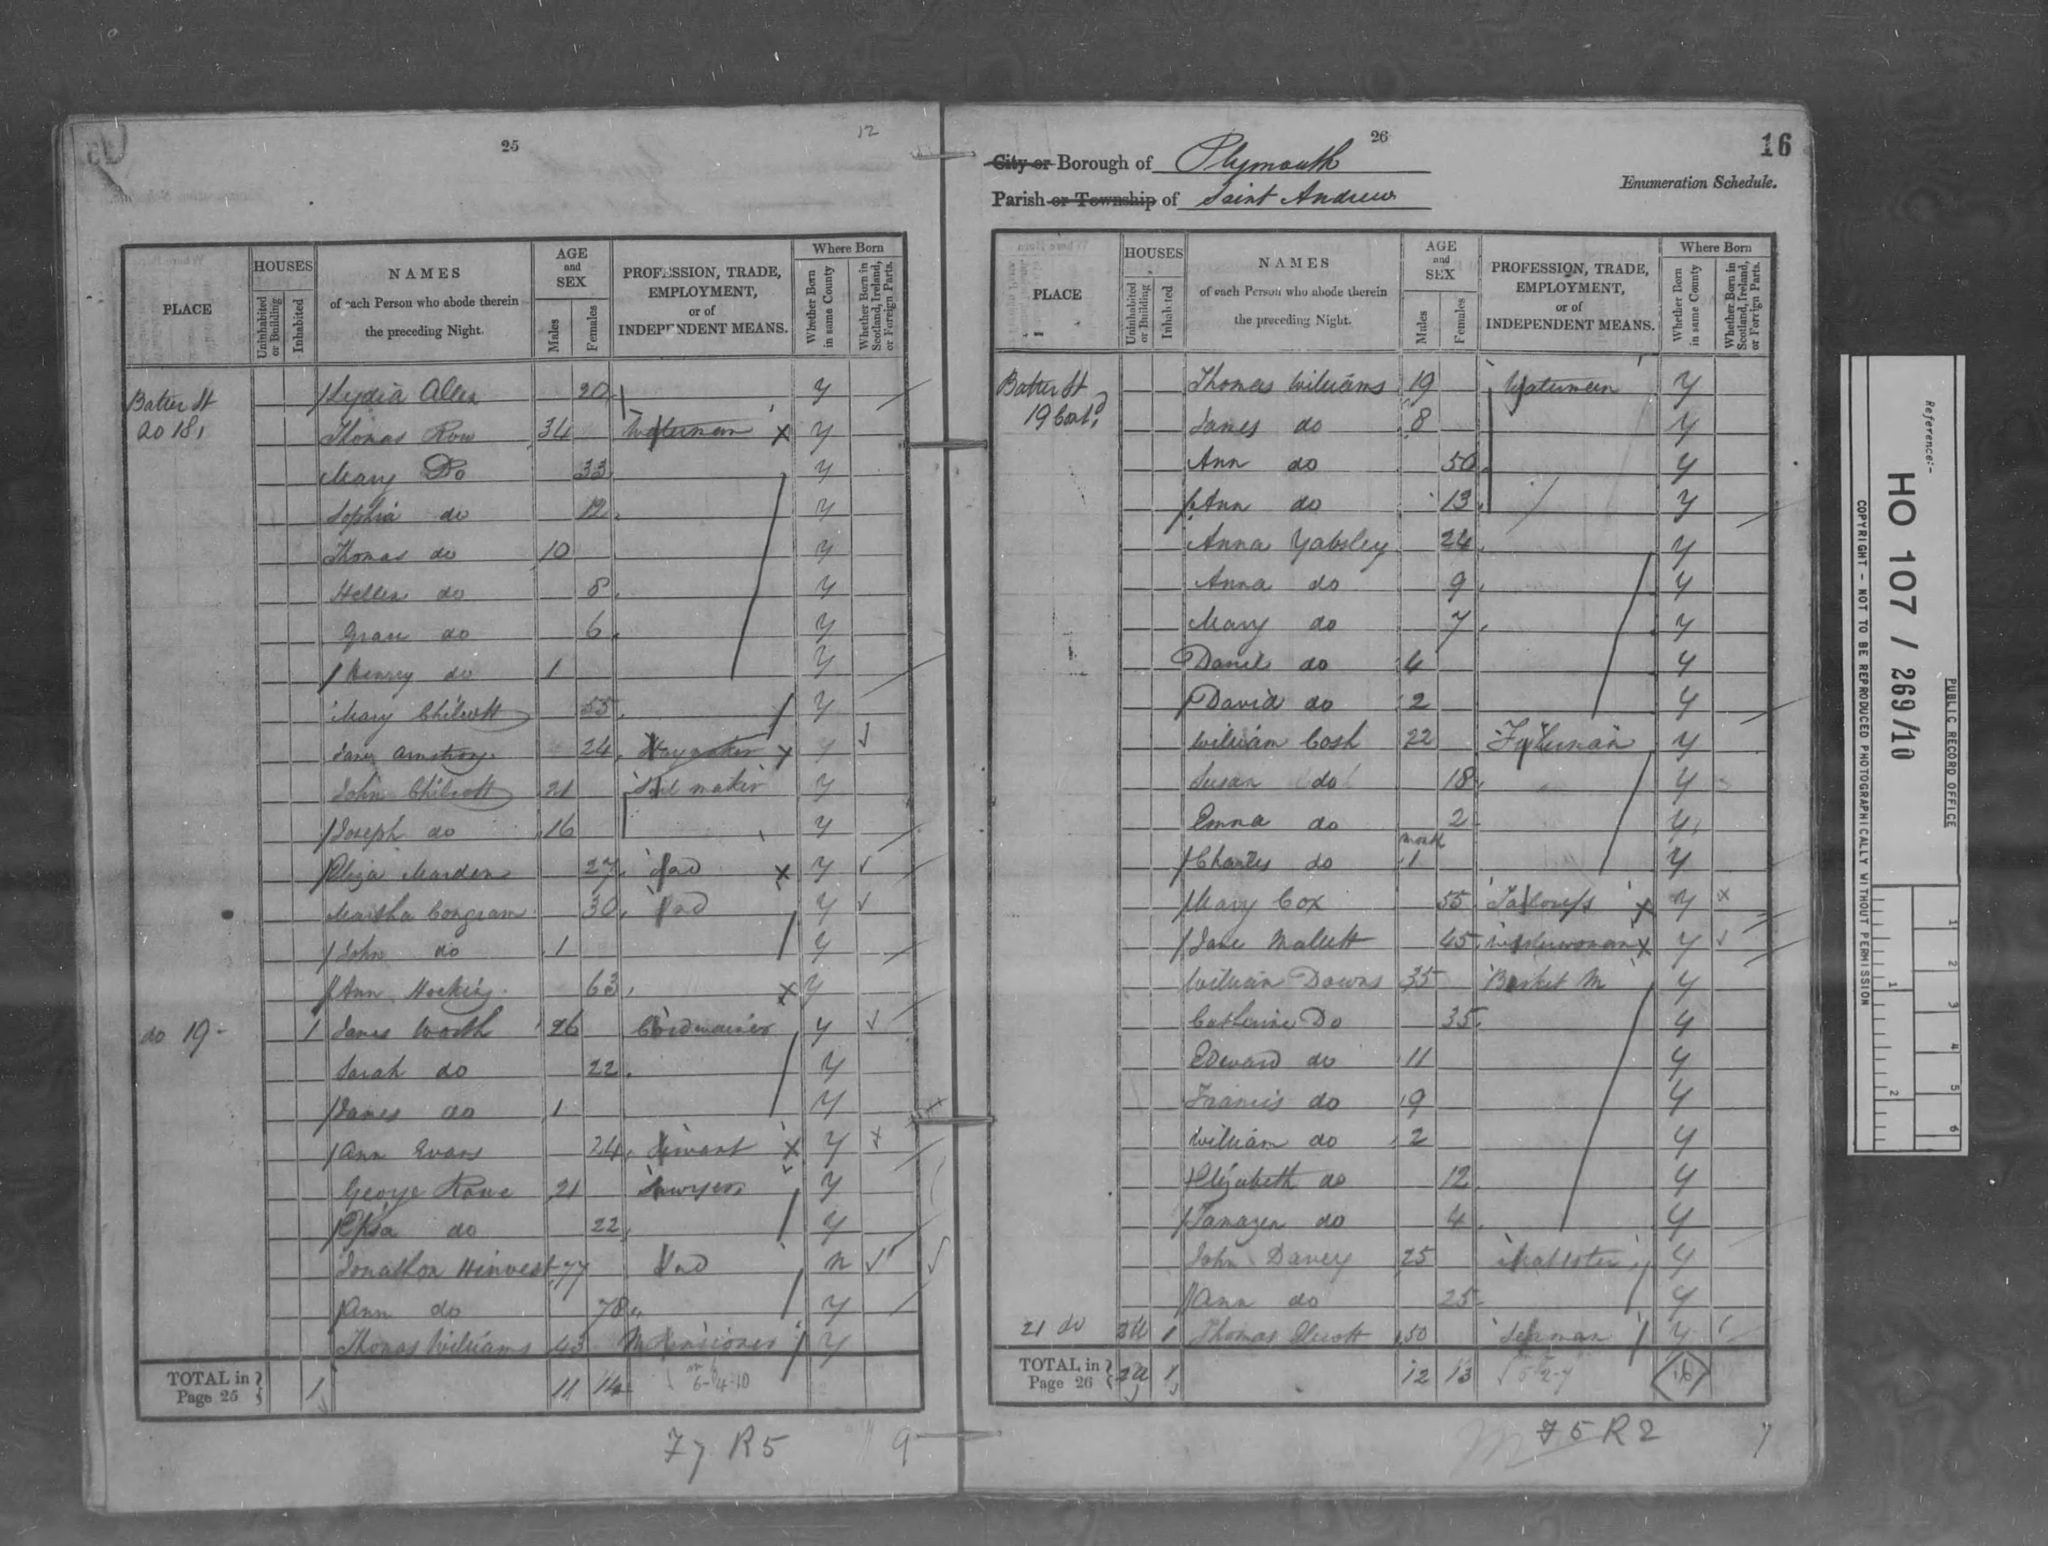 25
12
PLACE
HOUSES
Uninhabited or Building
Inhabited
NAMES
of each Person who abode therein
the preceding Night.
AGE
and
SEX
Males
Females
PROFESSION, TRADE,
EMPLOYMENT,
or of
INDEPENDENT MEANS.
Where Born
Whether Born in same County
Whether Born in Scotland, Ireland, or Foreign Parts.
Batter St Lydia Allen 20 y
do 18 Thomas Row 34 Waterman x y
Mary Do 33 y
Sophia do 12 y
Thomas do 10 y
Hellen do 8 y
Grace do 6 y
Henry do 1 y
Mary Chilcott 55 y
Jane 24 x y
John Chilcott 21 Sail maker y
Joseph do 16 y
Eliza Marden 27 x y
Martha Congram 30 y
John do 1 y
Ann Hocking 63 x y
do 19 1 James Worth 26 Cordwainer y
Sarah do 22 y
James do 1 y
Ann Evans 24 Servant x y
George Rowe 21 Sawyer y
do 22 y
Jonathon 77 Ind n
Ann do 78 y
Thomas Williams 43 Pensioner y
TOTAL in Page 25 1 11 14
6-4-10
77 R5
9
26
16
City or Borough of Plymouth
Parish or Township of Saint Andrew
Enumeration Schedule.
PLACE
HOUSES
Uninhabited or Building
Inhabited
NAMES
of each Person who abode therein
the preceding Night.
AGE
and
SEX
Males
Females
PROFESSION, TRADE,
EMPLOYMENT,
or of
INDEPENDENT MEANS.
Where Born
Whether Born in same County
Whether Born in Scotland, Ireland, or Foreign Parts.
Batter St Thomas Williams 19 Waterman y
19 Contd James do 8 y
Ann do 50 y
Ann do 13 y
Anna Yabsley 24 y
Anna do 9 y
Mary do 7 y
Daniel do 4 y
David do 2 y
William Cosh 22 y
Susan do 18 y
Emma do 2 y
Charles do 1 month y
Mary Cox 55 Tailoress x y x
Jane Mallett 45 Washerwoman x y
William Downs 35 Basket M y
Catherine Do 35 y
Edward do 11 y
Francis do 9 y
William do 2 y
Elizabeth do 12 y
Tamazen do 4 y
John Davey 25 y
Ann do 25 y
21 do 1 Thomas 50 Seaman y
TOTAL in Page 26 1 12 13
16
75 R2
7
Reference:-
HO 107 / 269/10
PUBLIC RECORD OFFICE
COPYRIGHT - NOT TO BE REPRODUCED PHOTOGRAPHICALLY WITHOUT PERMISSION
1
2
3
4
5
6
1
2